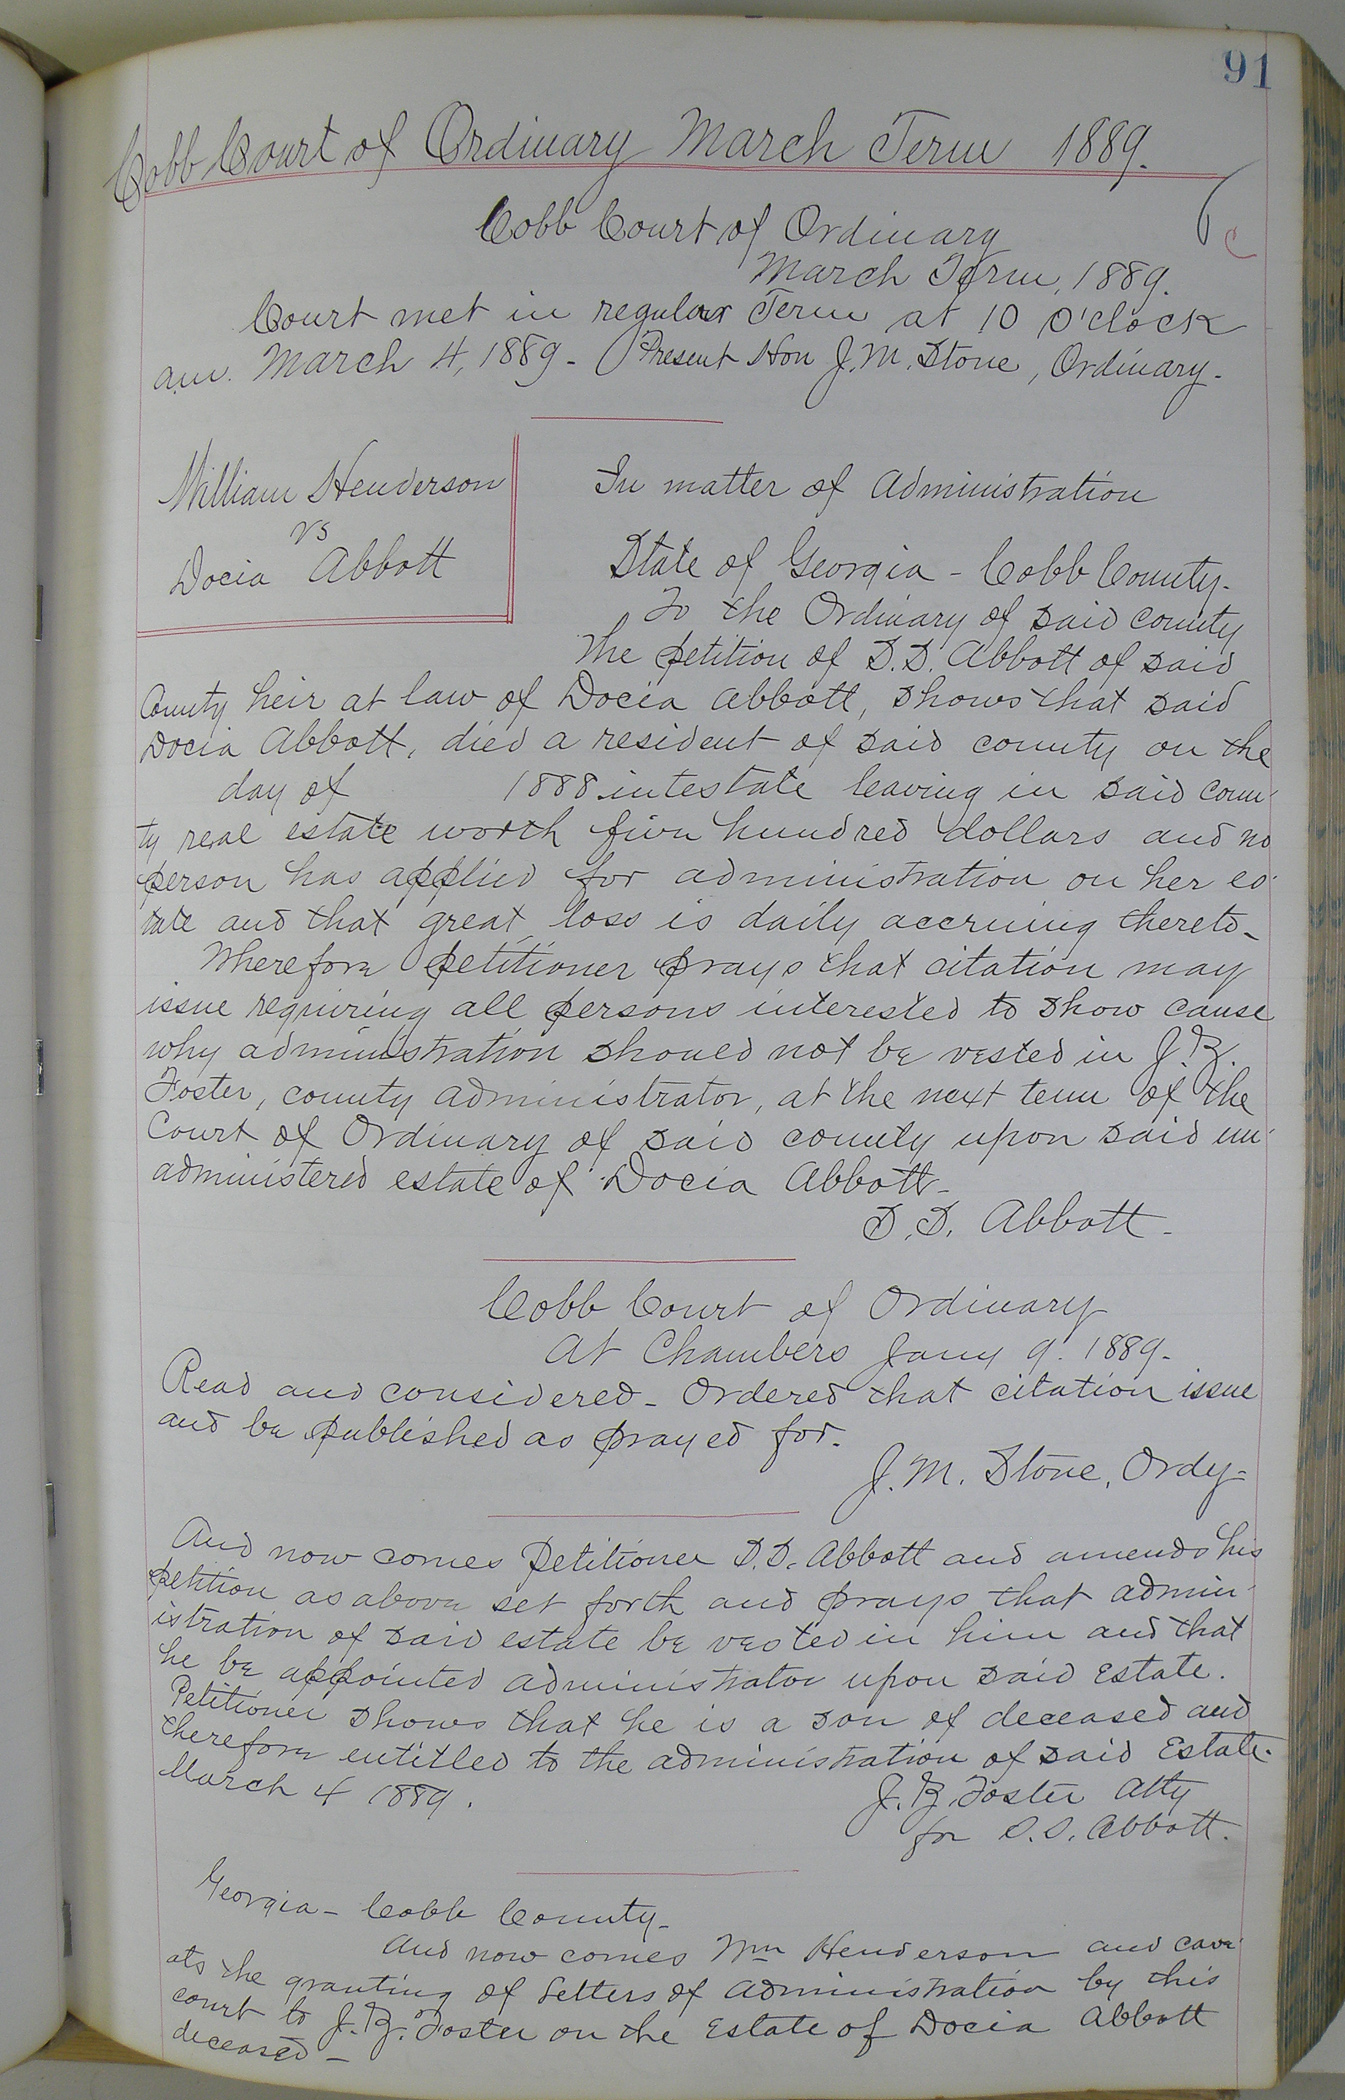 91
Cobb Court of Ordinary March Term 1889.
Cobb Court of Ordinary
March Term, 1889.
Court met in regular Term at 10 O'clock
am. March 4, 1889 - Present Hon J. M. Stone, Ordinary.
William Henderson
vs
Docia Abbott
In matter of Administration
State of Georgia - Cobb County.
To the Ordinary of said county
The petition of D. D. Abbott of said
County heir at law of Docia Abbott, shows that said
Docia Abbott, died a resident of said county on the
day of 1888 intestate leaving in said coun-
ty real estate worth five hundred dollars and no
person has applied for administration on her es-
tate and that great loss is daily accruing thereto -
Wherefore petitioner prays that citation may
issue requiring all persons interested to show cause
why administration should not be vested in J. Z.
Foster, county administrator, at the next term of the
Court of Ordinary of said county upon said un-
administered estate of Docia Abbott -
D. D. Abbott -
Cobb Court of Ordinary
At Chambers Jany 9. 1889 -
Read and considered - Ordered that citation issue
and be published as prayed for.
J. M. Stone, Ordy -
And now comes Petitioner D. D. Abbott and amends his
petition as above set forth and prays that admin-
istration of said estate be vested in him and that
he be appointed administrator upon said Estate.
Petitioner shows that he is a son of deceased and
therefore entitled to the administration of said Estate -
March 4 1889.
J. Z. Foster Atty
for D. D. Abbott.
Georgia - Cobb County -
And now comes Wm Henderson and cave-
ats the granting of Letters of Administration by this
court to J. Z. Foster on the Estate of Docia Abbott
deceased -